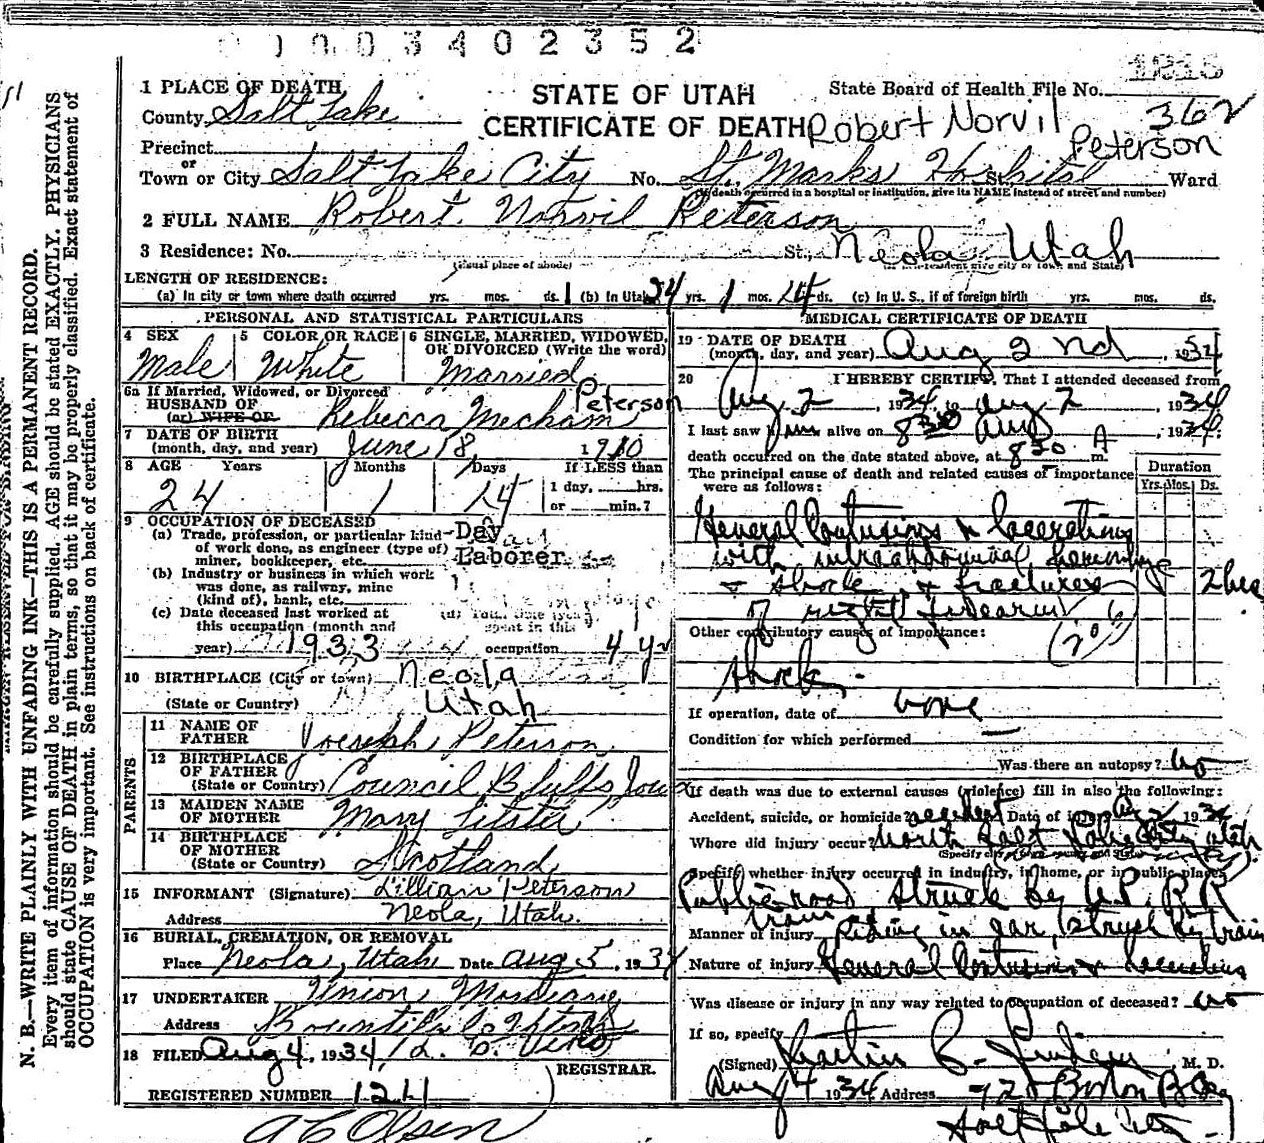 1003402352
1 PLACE OF DEATH
STATE OF UTAH
State Board of Health File No.
362
County Salt Lake
CERTIFICATE OF DEATH
Robert Norvil Peterson
Precinct
or
Town or City Salt Lake City No. St. Marks Hospital St. Ward
(If death occurred in a hospital or institution, give its NAME instead of street and number)
2 FULL NAME Robert Norvil Peterson
3 Residence: No. St., Neola Utah
(Usual place of abode) (If non-resident give city or town and State)
LENGTH OF RESIDENCE:
(a) In city or town where death occurred yrs. mos. ds. 1 (b) In Utah 24 yrs. 1 mos. 14 ds. (c) In U. S., if of foreign birth yrs. mos. ds.
PERSONAL AND STATISTICAL PARTICULARS
4 SEX
Male
5 COLOR OR RACE
White
6 SINGLE, MARRIED, WIDOWED, OR DIVORCED (Write the word)
Married
6a If Married, Widowed, or Divorced
HUSBAND OF
(or) WIFE OF
Rebecca Mecham Peterson
7 DATE OF BIRTH
(month, day, and year) June 18, 1910
8 AGE Years Months Days If LESS than
24 1 14 1 day, hrs.
or min.?
9 OCCUPATION OF DECEASED
(a) Trade, profession, or particular kind
of work done, as engineer (type of)
miner, bookkeeper, etc.
Day
Laborer
(b) Industry or business in which work
was done, as railway, mine
(kind of), bank, etc.
(c) Date deceased last worked at
this occupation (month and
year) 1933
(d) Total time (years)
spent in this
occupation 4 yr
10 BIRTHPLACE (City or town) Neola
(State or Country) Utah
PARENTS
11 NAME OF
FATHER Joesph Peterson
12 BIRTHPLACE
OF FATHER
(State or Country) Council Bluffs Iowa
13 MAIDEN NAME
OF MOTHER Mary Litster
14 BIRTHPLACE
OF MOTHER
(State or Country) Scotland
15 INFORMANT (Signature) Lillian Peterson
Address Neola, Utah.
16 BURIAL, CREMATION, OR REMOVAL
Place Neola, Utah Date Aug 5, 1934
17 UNDERTAKER Union Mortuary
Address Bountiful, Utah
18 FILED Aug 4, 1934
REGISTRAR.
REGISTERED NUMBER 1211
A C Olsen
MEDICAL CERTIFICATE OF DEATH
19 DATE OF DEATH
(month, day, and year) Aug 2nd, 1934
20 I HEREBY CERTIFY, That I attended deceased from
Aug 2, 1934, to Aug 2, 1934
I last saw him alive on 8 30 Aug, 1934
death occurred on the date stated above, at 8 30 A m.
The principal cause of death and related causes of importance
were as follows:
Duration
Yrs. Mos. Ds.
General Contusions & lacerations
with intraabdominal hemorrhage
& shock & fractures 2 hrs
of right forearm
Other contributory causes of importance:
Shock.
If operation, date of none
Condition for which performed
Was there an autopsy? No
If death was due to external causes (violence) fill in also the following:
Accident, suicide, or homicide? accident Date of injury Aug 2, 1934
Where did injury occur? North Salt Lake Utah
(Specify city or town, county and State)
Specify whether injury occurred in industry, in home, or in public place,
Public road, struck by U.P. R R
train
Manner of injury Riding in car, struck by train
Nature of injury General Contusions & lacerations
Was disease or injury in any way related to occupation of deceased? No
If so, specify
(Signed) M. D.
Aug 4 1934 Address 720 Boston Bldg
Salt Lake
N. B.—WRITE PLAINLY WITH UNFADING INK—THIS IS A PERMANENT RECORD.
Every item of information should be carefully supplied. AGE should be stated EXACTLY. PHYSICIANS
should state CAUSE OF DEATH in plain terms, so that it may be properly classified. Exact statement of
OCCUPATION is very important. See instructions on back of certificate.